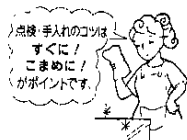 点検・手入れのコツは
すぐに!
こまめに!
がポイントです。